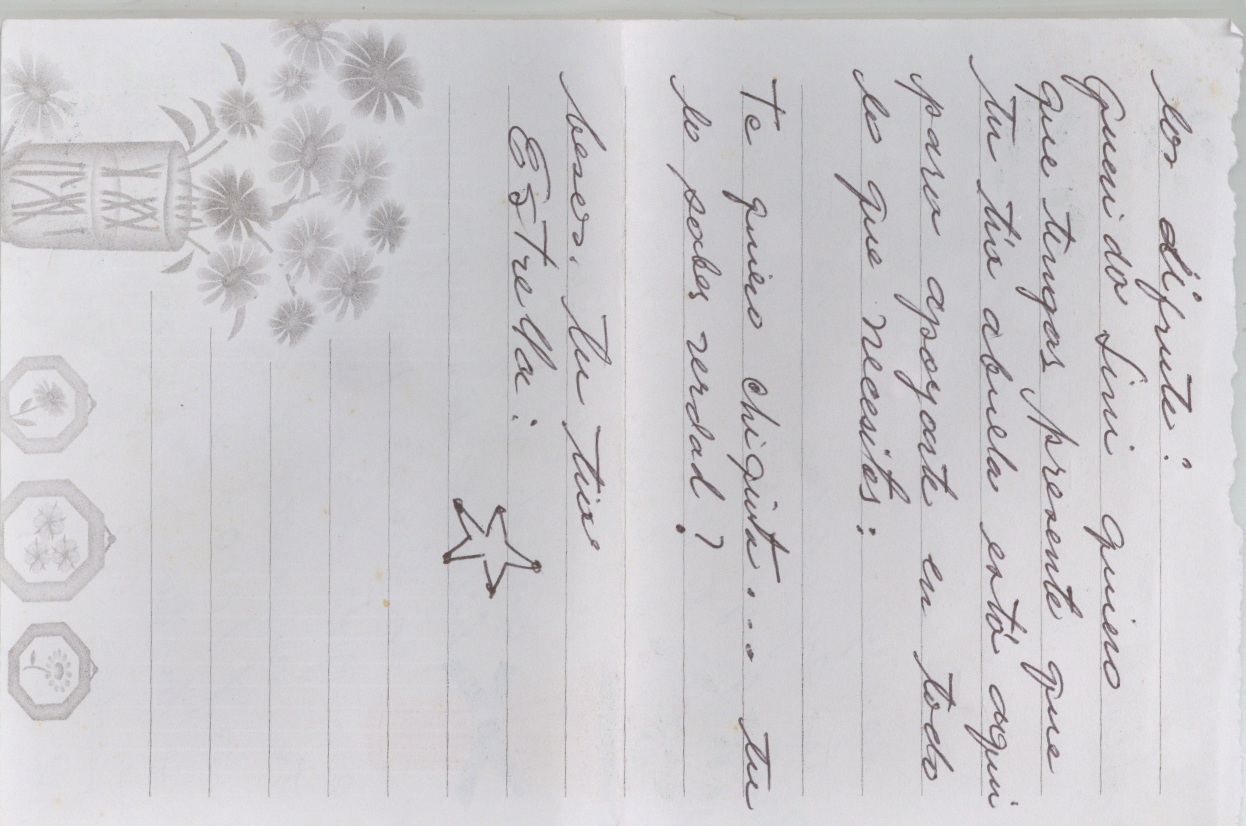 los difrute!
Querida Simi quiero
que tengas presente que
tu tia abuela está aqui
para apoyarte en todo
lo que necesitas!
Te quiero chiquita... tu
lo sabes verdad?
besos. tu tia
Estrella!